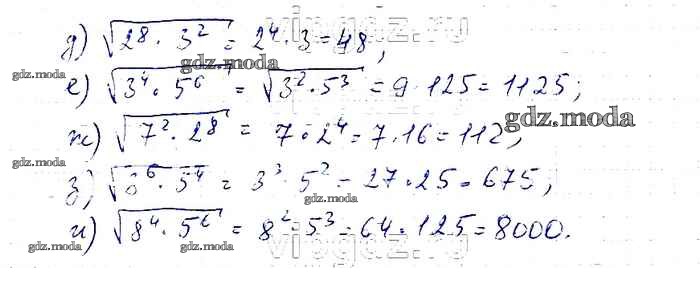 д) √(2⁸ · 3²) = 2⁴ · 3 = 48;
е) √(3⁴ · 5⁶) = √(3² · 5³) = 9 · 125 = 1125;
ж) √(7² · 2⁸) = 7 · 2⁴ = 7 · 16 = 112;
з) √(3⁶ · 5⁴) = 3³ · 5² = 27 · 25 = 675;
и) √(8⁴ · 5⁶) = 8² · 5³ = 64 · 125 = 8000.
gdz.moda
gdz.moda
gdz.moda
gdz.moda
gdz.moda
gdz.moda
gdz.moda
gdz.moda